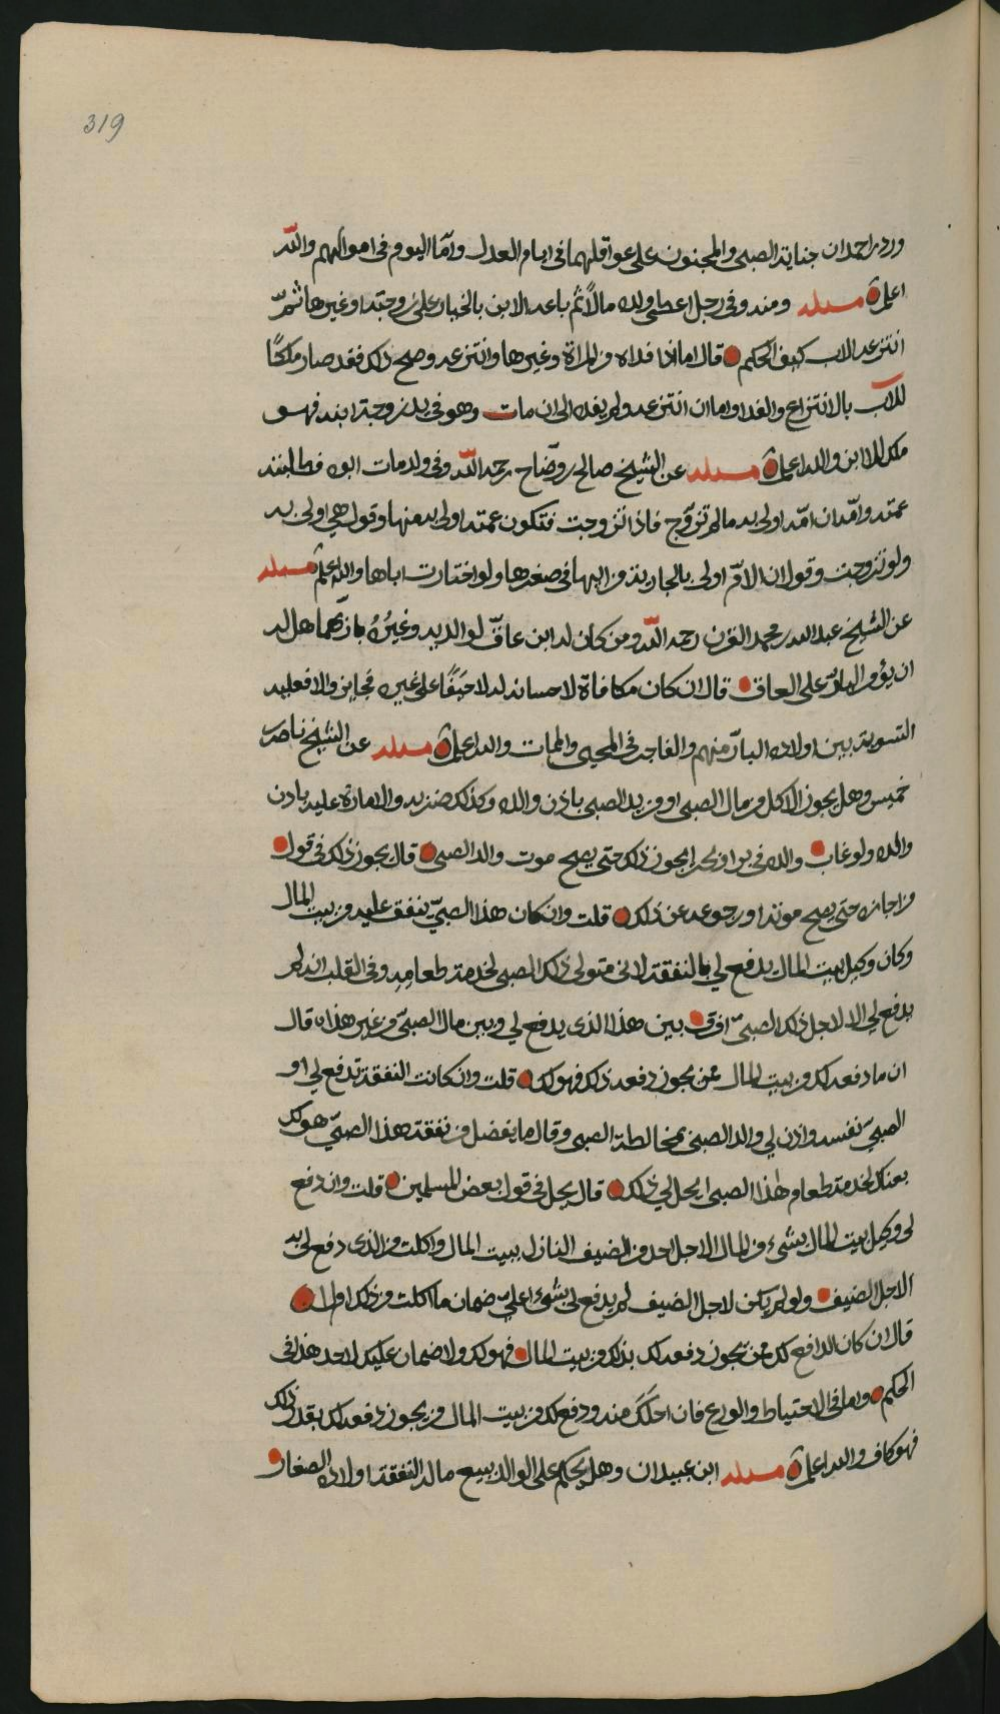 319
ورد بن احمد ان جناية الصبي والمجنون على عواقلهما في ايام العدل واما اليوم في اموالهم والله
اعلم مسئلة ومنه وفي رجل اعطى ولده مالا ثم باعه الابن بالخيار على زوجته او غيرها ثم
انتزعه الاب كيف الحكم قال اما اذا فداه من المراة وغيرها وانتزعه وصح ذلك فقد صار ملكا
للاب بالانتزاع والفدا واما ان انتزعه ولم يفده الى ان مات وهو في يد زوجة ابنه فهو
ملك للابن والله اعلم مسئلة عن الشيخ صالح بن وضاح رحمه الله وفي ولد مات ابوه فطلبته
عمته وامه ان امه اولى به ما لم تزوج فاذا تزوجت فتكون عمته اولى به منها وقول هي اولى به
ولو تزوجت وقول ان الام اولى بالجارية من ابيها في صغرها ولو اختارت اباها والله اعلم مسئلة
عن الشيخ عبد الله بن محمد القرن رحمه الله ومن كان له ابن عاق لوالديه وغيره بار بهما هل له
ان يؤثر البار على العاق قال ان كان مكافاة لاحسانه له لا حيفا على غيره فجايز والا فعليه
التسوية بين اولاده البار منهم والفاجر في المحيى والممات والله اعلم مسئلة عن الشيخ ناصر بن
خميس وهل يجوز الاكل من مال الصبي او من يد الصبي باذن والده وكذلك ضربه والامارة عليه باذن
والده ولو غاب والده في بر او بحر ايجوز ذلك حتى يصح موت والد الصبي قال يجوز ذلك في قول
من اجازه حتى يصح موته او رجوعه عن ذلك قلت وان كان هذا الصبي ينفق عليه من بيت المال
وكان وكيل بيت المال يدفع لي بالنفقة لاني متولي ذلك الصبي لخدمة طعامه وفي القلب انه لم
يدفع لي الا لاجل ذلك الصبي افرق بين هذا الذي يدفع لي وبين مال الصبي من غير هذا قال
ان ما دفعه لك من بيت المال ممن يجوز دفعه ذلك فهو لك قلت وان كانت النفقة تدفع لي او
الصبي نفسه واذن لي والد الصبي بمخالطة الصبي وقال ما يفضل من نفقة هذا الصبي هو لك
بعناك لخدمة طعام هذا الصبي ايحل لي ذلك قال يحل في قول بعض المسلمين قلت وان دفع
لي وكيل بيت المال بشيء من المال الاجل احد من الضيف النازل ببيت المال واكلت من الذي دفع لي به
الاجل الضيف ولو لم يكن لاجل الضيف لم يدفع لي بشيء اعلي ضمان ما اكلت من ذلك ام لا
قال ان كان الدافع لك ممن يجوز دفعه لك بذلك من بيت المال فهو لك ولا ضمان عليك لاحد هذا في
الحكم واما في الاحتياط والورع فان احلك منه ودفع لك من بيت المال من يجوز دفعه لك بقدر ذلك
فهو كاف والله اعلم مسئلة ابن عبيدان وهل يحكم على الوالد ببيع ماله لنفقة اولاده الصغار و